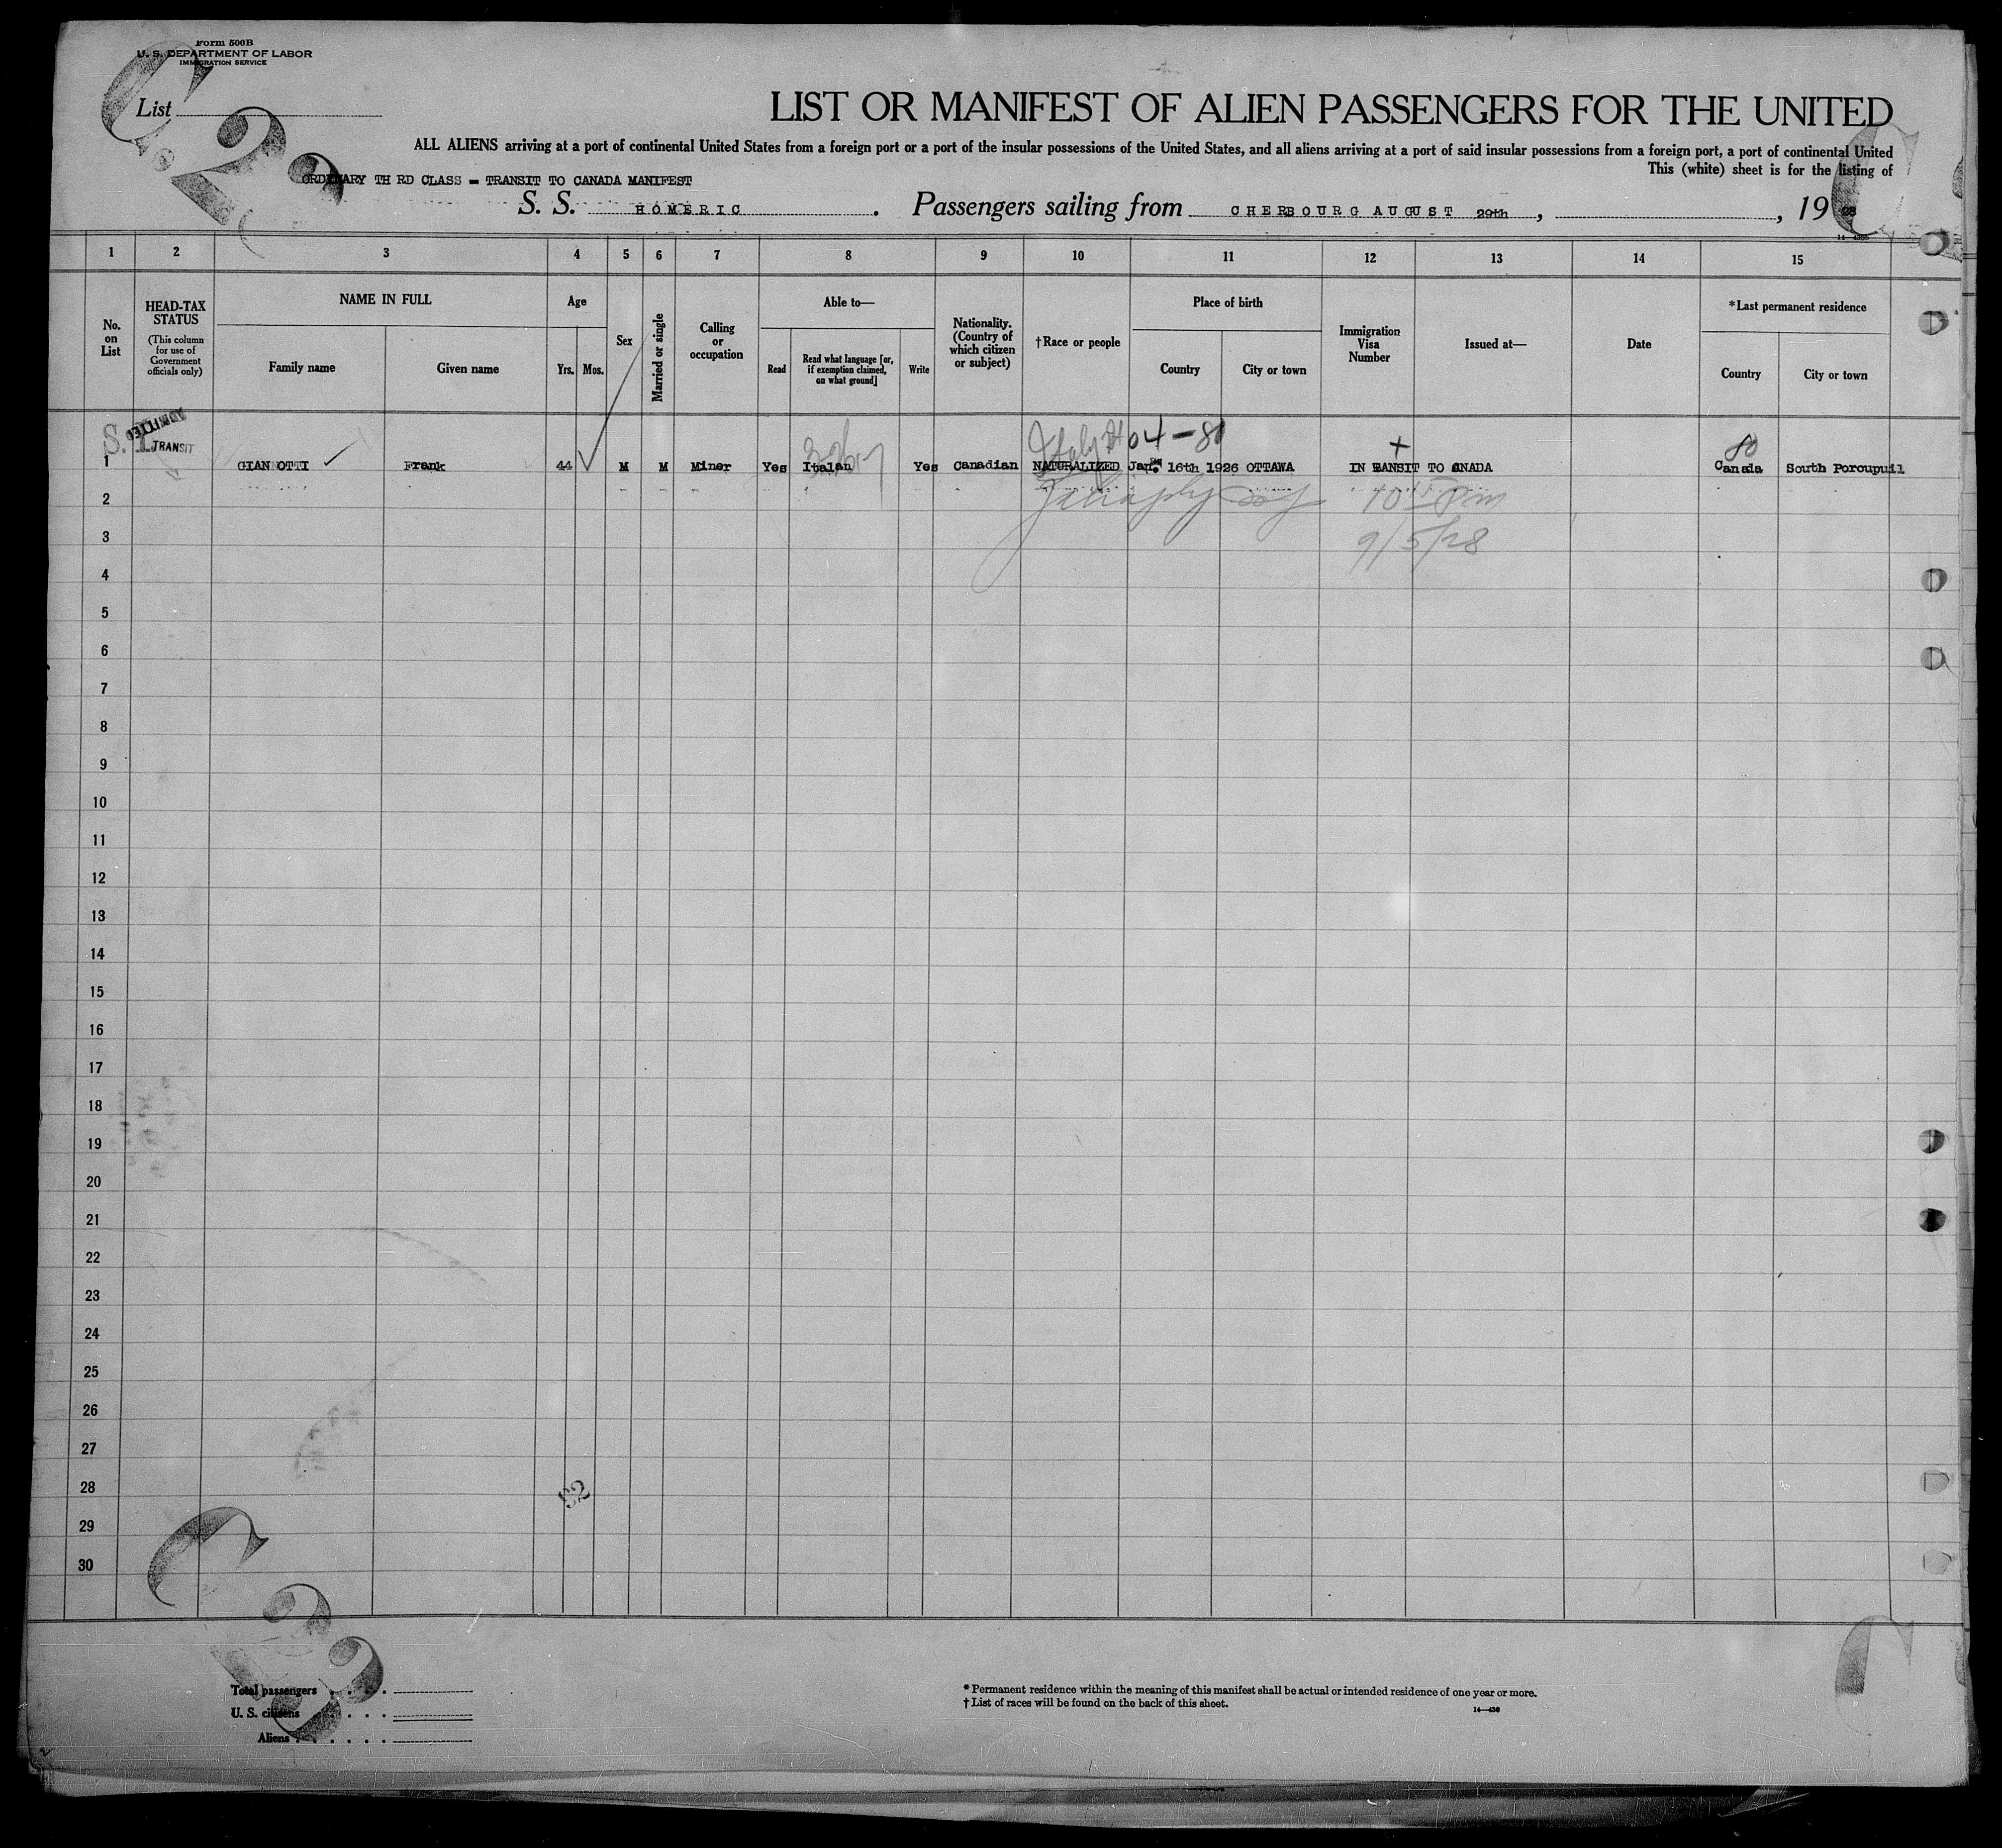 Form 500B
U. S. DEPARTMENT OF LABOR
IMMIGRATION SERVICE
List
LIST OR MANIFEST OF ALIEN PASSENGERS FOR THE UNITED
ALL ALIENS arriving at a port of continental United States from a foreign port or a port of the insular possessions of the United States, and all aliens arriving at a port of said insular possessions from a foreign port, a port of continental United
This (white) sheet is for the listing of
ORDINARY TH RD CLASS - TRANSIT TO CANADA MANIFEST
S. S. HOMERIC. Passengers sailing from CHERBOURG AUGUST 29th, , 1928
1 2 3 4 5 6 7 8 9 10 11 12 13 14 15
No. on List
HEAD-TAX STATUS (This column for use of Government officials only)
NAME IN FULL
Family name
Given name
Age
Yrs.
Mos.
Sex
Married or single
Calling or occupation
Able to—
Read
Read what language [or, if exemption claimed, on what ground]
Write
Nationality. (Country of which citizen or subject)
†Race or people
Place of birth
Country
City or town
Immigration Visa Number
Issued at—
Date
*Last permanent residence
Country
City or town
ADMITTED
S. I. TRANSIT
Italy 04-81
+
80
1 GIANOTTI Frank 44 M M Miner Yes Italan Yes Canadian NATURALIZED Jan. 16th 1926 OTTAWA IN RANSIT TO ANADA Canada South Porcupuil
2 10 15 pm
3 9/5/28
4
5
6
7
8
9
10
11
12
13
14
15
16
17
18
19
20
21
22
23
24
25
26
27
28
29
30
Total passengers
U. S. citizens
Aliens
* Permanent residence within the meaning of this manifest shall be actual or intended residence of one year or more.
† List of races will be found on the back of this sheet.